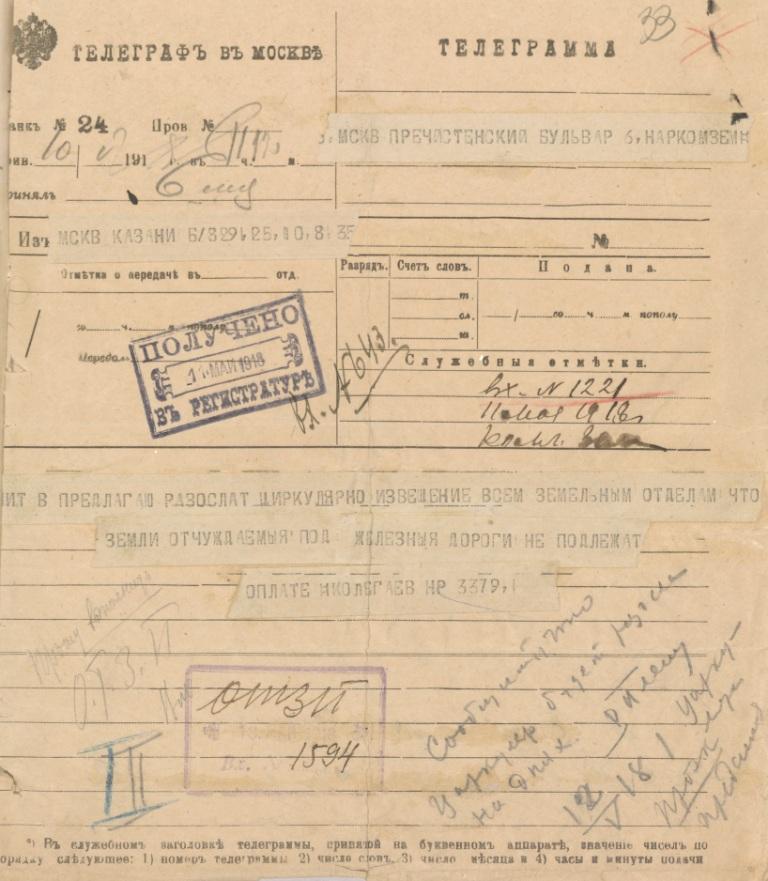 ТЕЛЕГРАФЪ ВЪ МОСКВѢ
ТЕЛЕГРАММА
33
анкъ № 24 Пров №
, МСКВ ПРЕЧИСТЕНСКИЙ БУЛЬВАР 6, НАРКОМЗЕМ
рин. 10/V 191 г. въ ч. м.
ринялъ
Изъ МСКВ КАЗАНИ 6/329,25,10,8,35
№
Отмѣтка о передачѣ въ отд.
Разрядъ. Счетъ словъ. Подана.
т.
сл.
ш.
/ со ч. м пополу
ч. пополу
Передалъ
ПОЛУЧЕНО
11 МАЙ 1918
ВЪ РЕГИСТРАТУРѢ
вх. № 643.
Служебныя отмѣтки.
вх. N 1221
11 мая 1918г
ИТ В ПРЕДЛАГАЮ РАЗОСЛАТ ЦИРКУЛЯРНО ИЗВЕЩЕНИЕ ВСЕМ ЗЕМЕЛЬНЫМ ОТДЕЛАМ ЧТО
ЗЕМЛИ ОТЧУЖДАЕМЫЯ ПОД ЖЕЛЕЗНЫЯ ДОРОГИ НЕ ПОДЛЕЖАТ
ОПЛАТЕ НКОЛЕГАЕВ НР 3379,
Прошу
О.Т.З.П
ОТЗП
Вх. № 1594
III
Сообщить что
циркуляр будет
на днях.
12/V 18
*) Въ служебномъ заголовкѣ телеграммы, принятой на буквенномъ аппаратѣ, значеніе чиселъ по
орядку слѣдующее: 1) номеръ телеграммы 2) число словъ, 3) число мѣсяца и 4) часы и минуты подачи